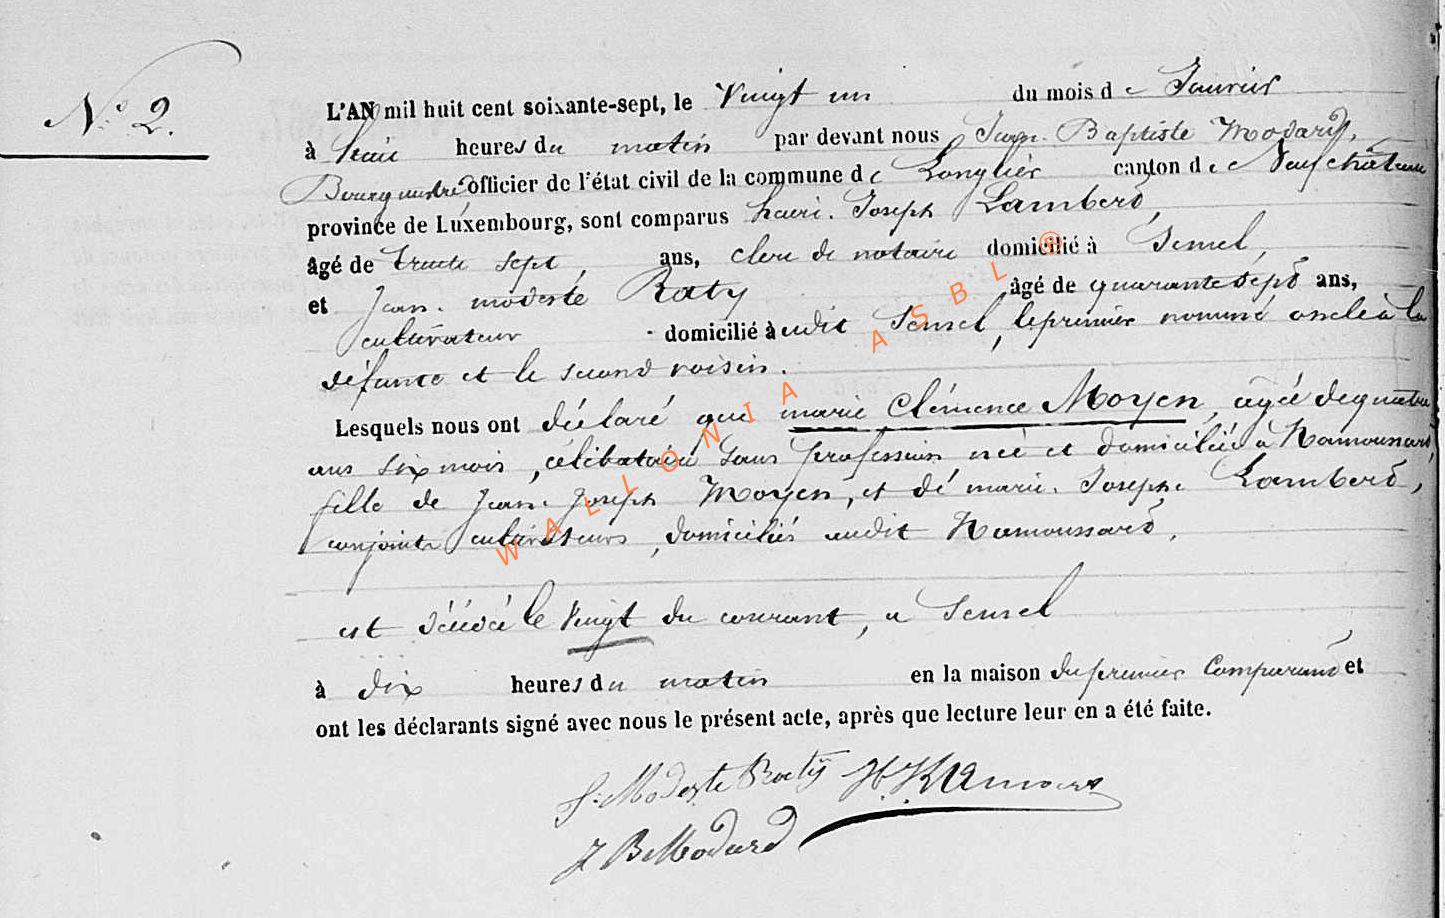 N° 2.
L'AN mil huit cent soixante-sept, le Vingt un du mois de Janvier
à heures du matin par devant nous Jean-Baptiste Modard,
Bourgmestre officier de l'état civil de la commune de Longlier canton de Neufchâteau
province de Luxembourg, sont comparus henri-Joseph Lambert,
âgé de trente sept ans, clerc de notaire domicilié à Semel,
et Jean-modeste Raty âgé de quarante sept ans,
cultivateur domicilié à audit Semel, le premier nommé oncle à la
défunte et le second voisin.
Lesquels nous ont déclaré que marie Clémence Moyen, agée de quatre
ans six mois, célibataire sans profession née et domiciliée à Hamoussard,
fille de Jean-Joseph Moyen, et de marie-Joseph Lambert,
conjoints cultivateurs, domiciliés audit Hamoussard,
est décédé le Vingt du courant, a Semel
à dix heures du matin en la maison du premier Comparant et
ont les déclarants signé avec nous le présent acte, après que lecture leur en a été faite.
J. Modeste Raty H. J. Lambert
J B Modard
WALLONIA ASBL ®